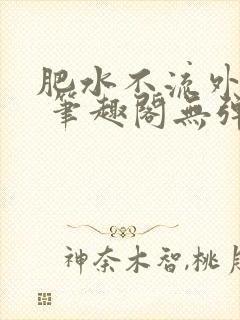 肥水不流外
筆趣閣無彈
神奈木智,桃月